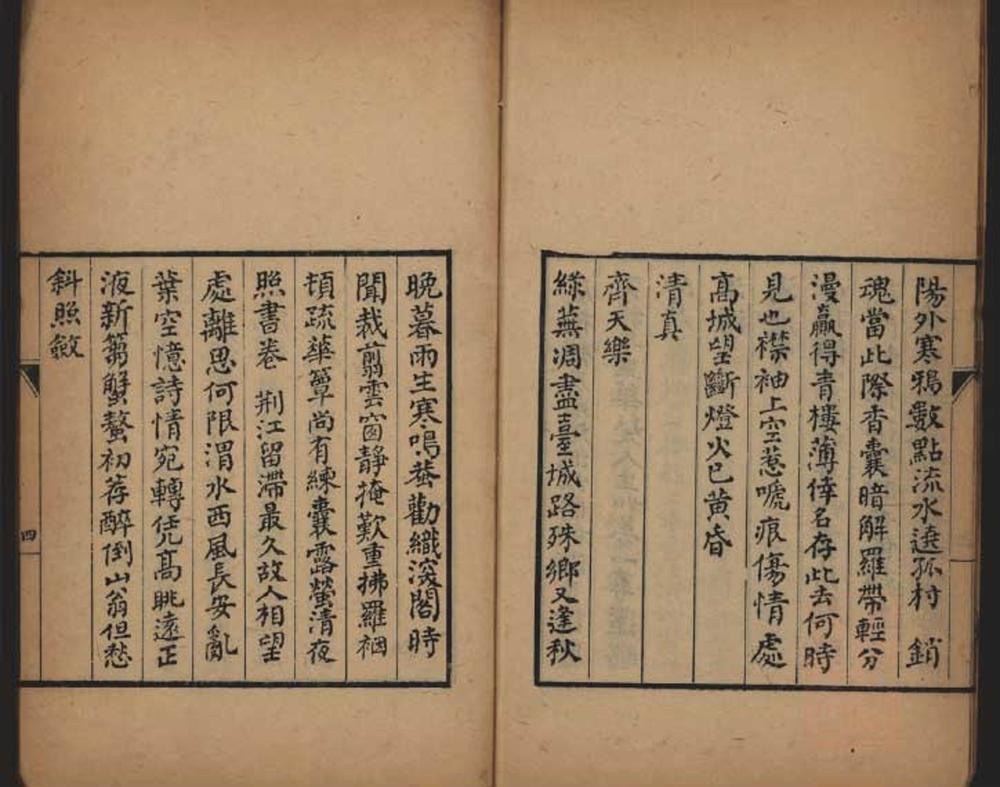 陽外寒鴉數點流水遶孤村　銷
魂當此際香囊暗解羅帶輕分
漫贏得青樓薄倖名存此去何時
見也襟袖上空惹嗁痕傷情處
高城望斷燈火已黃昏
清真
齊天樂
綠蕪凋盡臺城路殊鄉又逢秋
晚暮雨生寒鳴蛬勸織深閣時
聞裁翦雲窗靜掩歎重拂羅裀
頓疏華簟尚有練囊露螢清夜
照書卷　荆江留滯最久故人相望
處離思何限渭水西風長安亂
葉空憶詩情宛轉凭高眺遠正
液新篘蟹螯初荐醉倒山翁但愁
斜照斂
四